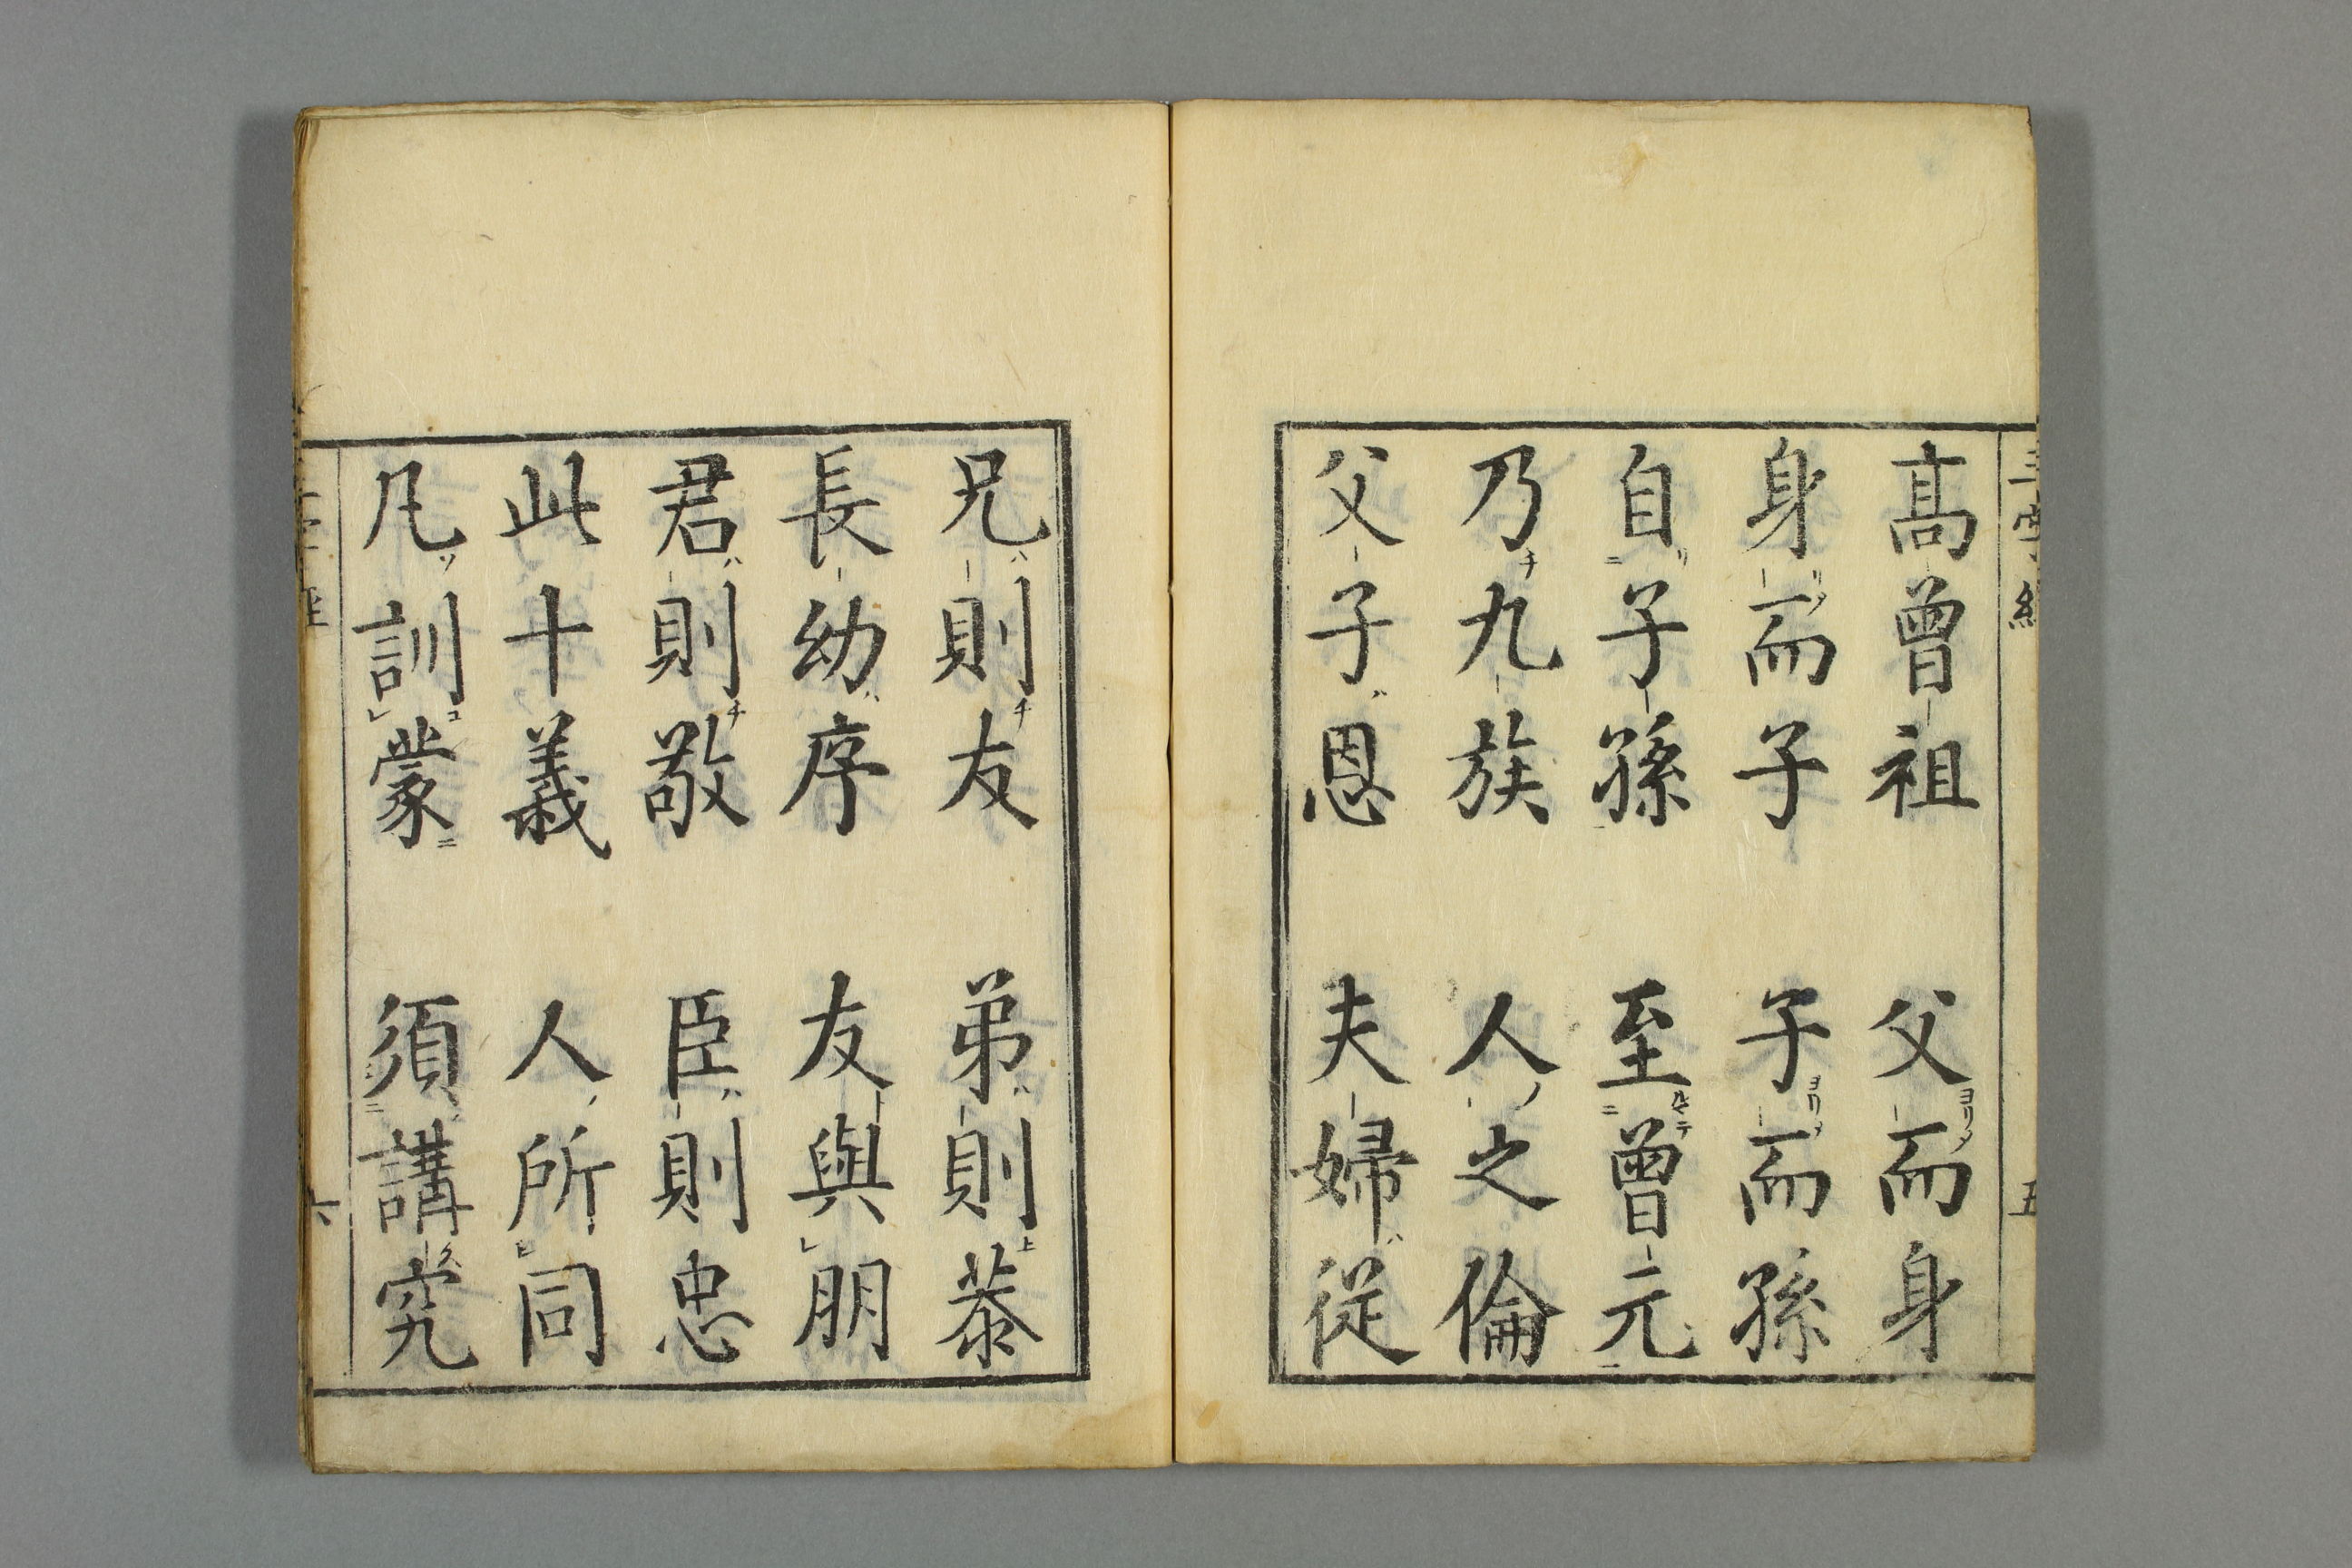 三字經 五
高曾祖 父而身
身而子 子而孫
自子孫 至曾元
乃九族 人之倫
父子恩 夫婦從
兄則友 弟則恭
長幼序 友與朋
君則敬 臣則忠
此十義 人所同
凡訓蒙 須講究
六